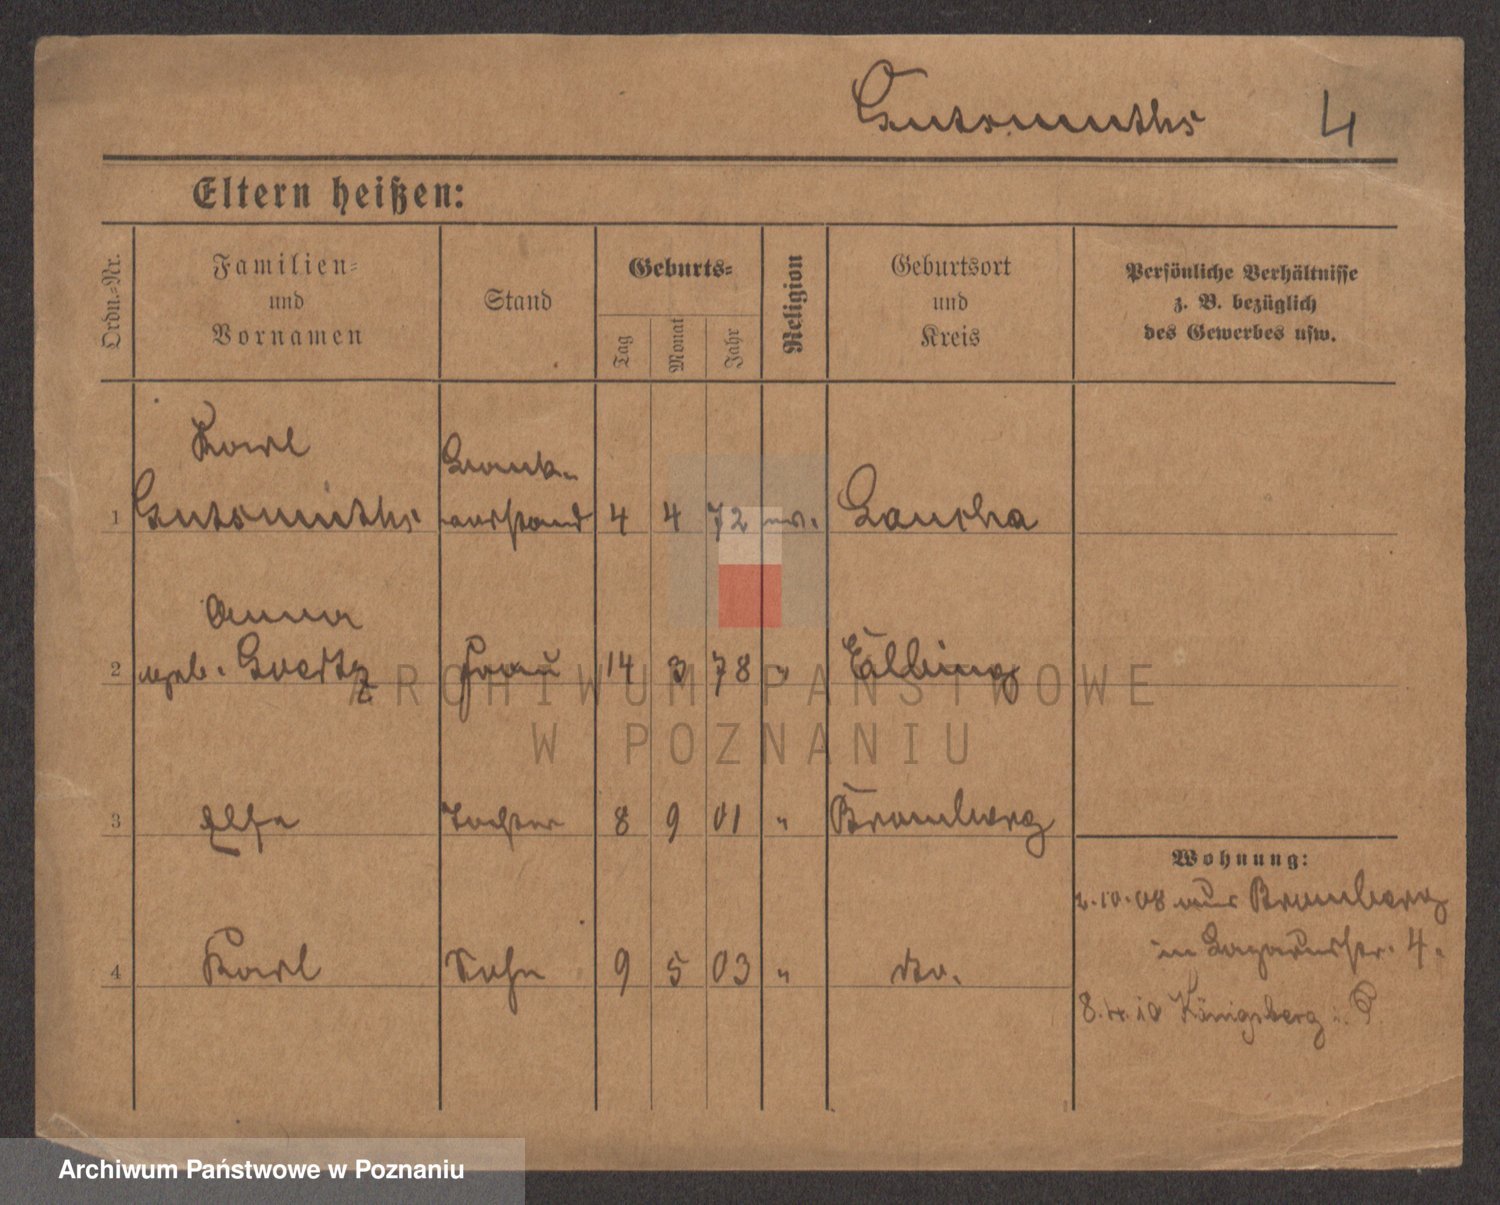 Gutsmuths 4
Eltern heißen:
Ordn.-Nr.
Familien-
und
Vornamen
Stand
Geburts-
Tag
Monat
Jahr
Religion
Geburtsort
und
Kreis
Persönliche Verhältnisse
z. B. bezüglich
des Gewerbes usw.
Karl Bank-
1 Gutsmuths vorstand 4 4 72 ev. Laucha
Anna
2 geb. Goertz Frau 14 3 78 " Elbing
3 Else Tochter 8 9 01 " Bromberg
4 Karl Sohn 9 5 03 " do.
Wohnung:
2.10.08 aus Bromberg
in Lazarusstr. 4.
8.4.10 Königsberg i. P
ARCHIWUM PAŃSTWOWE
W POZNANIU
Archiwum Państwowe w Poznaniu